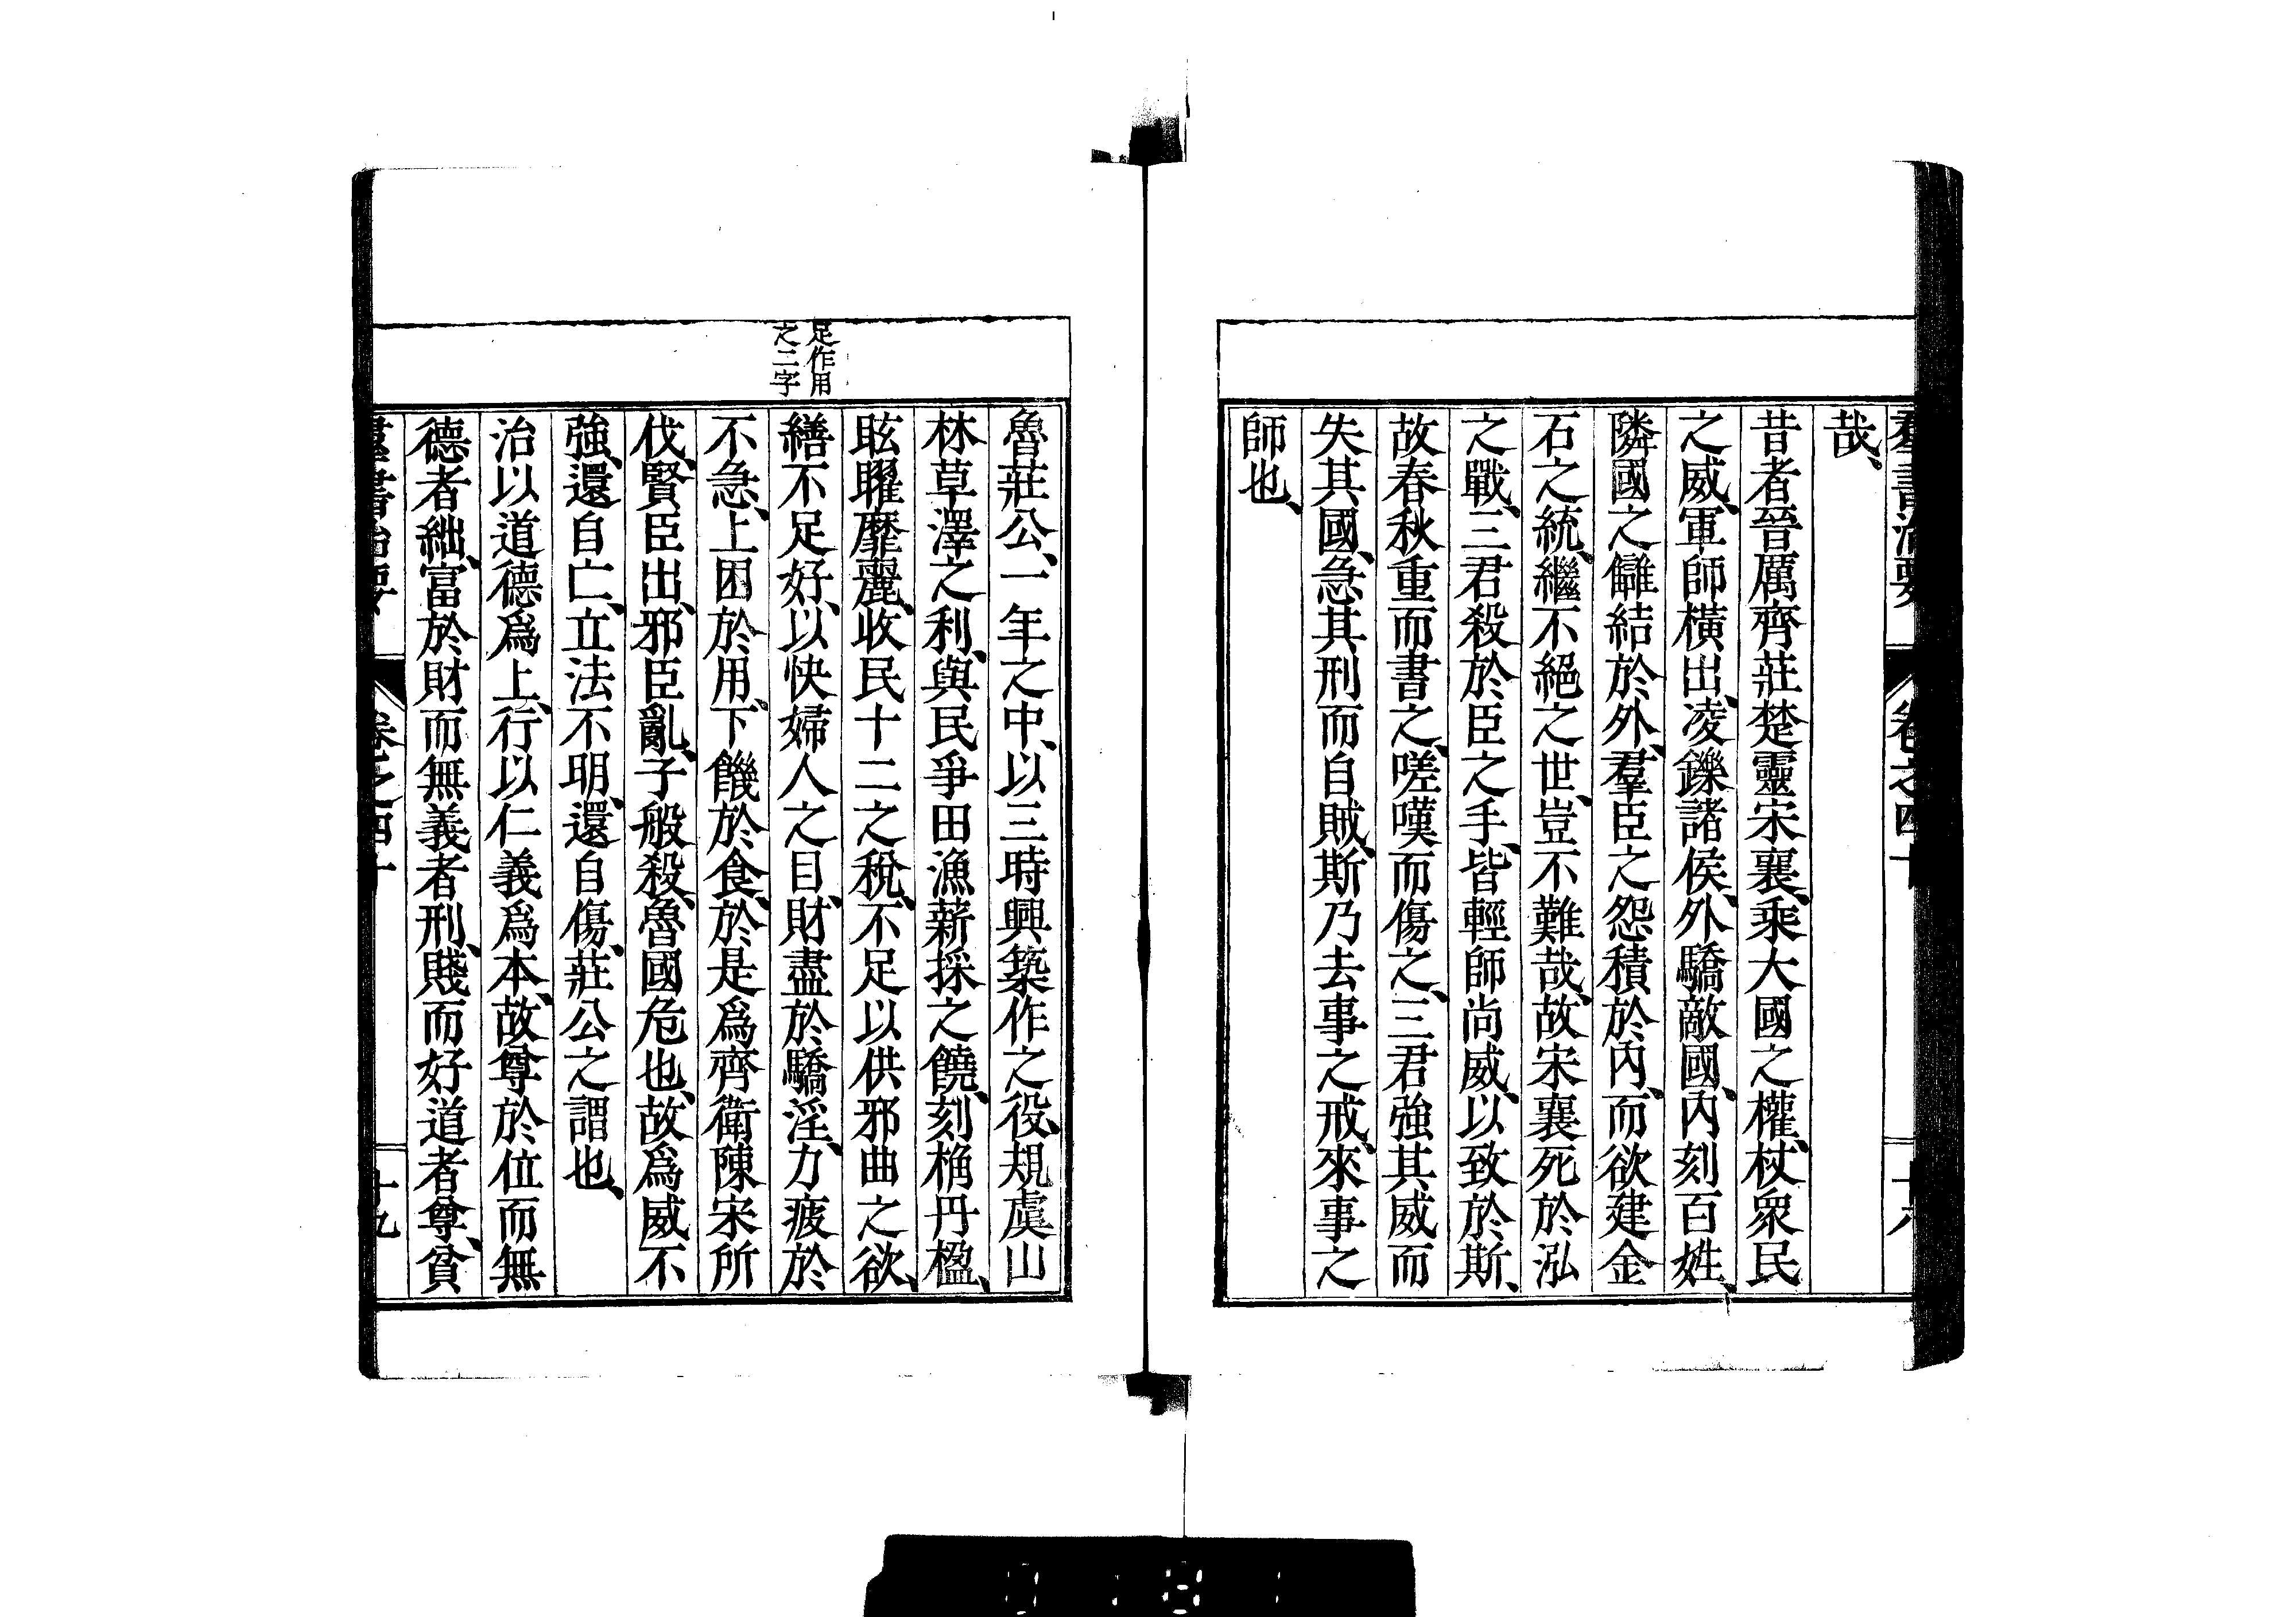 群書治要 卷之四十
哉、
昔者晉厲齊莊楚靈宋襄、乘大國之權、杖衆民
之威、軍師橫出、凌鑠諸侯、外驕敵國、內刻百姓、
隣國之讎結於外、羣臣之怨積於內、而欲建金
石之統、繼不絕之世、豈不難哉、故宋襄死於泓
之戰、三君殺於臣之手、皆輕師尚威、以致於斯、
故春秋重而書之、嗟嘆而傷之、三君強其威而
失其國、急其刑而自賊、斯乃去事之戒、來事之
師也、
足作用
之二字
魯莊公、一年之中、以三時興築作之役、規虞山
林草澤之利、與民爭田漁薪採之饒、刻桷丹楹、
眩曜靡麗、收民十二之稅、不足以供邪曲之欲、
繕不足好、以快婦人之目、財盡於驕淫、力疲於
不急、上困於用、下饑於食、於是爲齊衛陳宋所
伐、賢臣出、邪臣亂、子般殺、魯國危也、故爲威不
強、還自亡、立法不明、還自傷、莊公之謂也、
治以道德爲上、行以仁義爲本、故尊於位而無
德者絀、富於財而無義者刑、賤而好道者尊、貧
羣書治要 卷之四十 十九